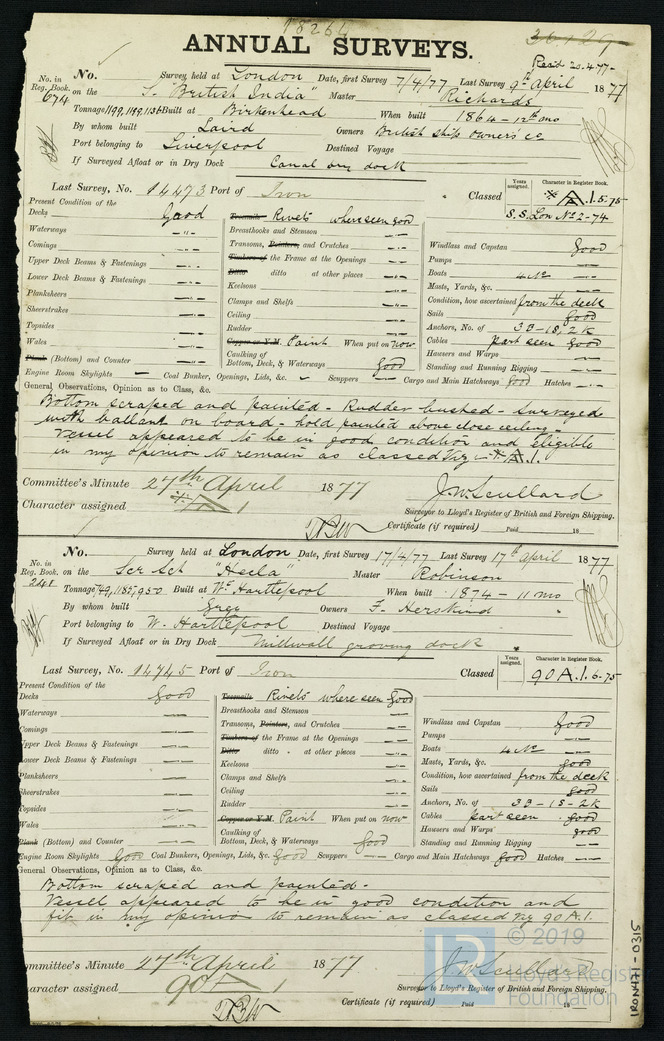 18264
36129
ANNUAL SURVEYS.
Recd 20.4.77
No. in Reg. Book. 674
No. Survey held at London Date, first Survey 7/4/77 Last Survey 9th April 1877
on the S. "British India" Master Richards
Tonnage 1199, 1199, 1136 Built at Birkenhead When built 1864 - 12th mo
By whom built Laird Owners British ship owners' co
Port belonging to Liverpool Destined Voyage
If Surveyed Afloat or in Dry Dock Canal dry dock
Last Survey, No. 14473 Port of Iron Classed
Years assigned. Character in Register Book.
A.1.5.75
S.S. Lon No 2-74
Present Condition of the
Decks Good
Treenails Rivets where seen good
Waterways "
Breasthooks and Stemson
Comings "
Transoms, Pointers, and Crutches
Windlass and Capstan good
Upper Deck Beams & Fastenings
Timbers of the Frame at the Openings
Pumps
Lower Deck Beams & Fastenings
Ditto ditto at other places
Boats 4 No
Planksheers
Keelsons
Masts, Yards, &c.
Sheerstrakes
Clamps and Shelfs
Condition, how ascertained from the deck
Topsides
Ceiling
Sails good
Wales
Rudder
Anchors, No. of 3B-1S, 2K
Plank (Bottom) and Counter
Copper or Y.M. Paint When put on now
Cables part seen good
Caulking of Bottom, Deck, & Waterways good
Hawsers and Warps
Standing and Running Rigging
Engine Room Skylights Coal Bunker, Openings, Lids, &c. Scuppers Cargo and Main Hatchways good Hatches
General Observations, Opinion as to Class, &c.
Bottom scraped and painted - Rudder bushed - Surveyed
with ballast on board - hold painted above close ceiling -
Vessel appeared to be in good condition and eligible
in my opinion to remain as classed viz A.1.
Committee's Minute 27th April 1877
J.W. Scullard
Character assigned A 1
Surveyor to Lloyd's Register of British and Foreign Shipping.
TBW Certificate (if required) Paid 18
No. in Reg. Book. 248
No. Survey held at London Date, first Survey 17/4/77 Last Survey 17th April 1877
on the Scr Sch "Hecla" Master Robinson
Tonnage 749, 1187, 950 Built at W. Hartlepool When built 1874 - 11 mo
By whom built Grey Owners F. Herskind
Port belonging to W. Hartlepool Destined Voyage
If Surveyed Afloat or in Dry Dock Millwall graving dock
Last Survey, No. 14745 Port of Iron Classed
Years assigned. Character in Register Book.
90 A.1. 6-75
Present Condition of the
Decks good
Treenails Rivets where seen good
Waterways
Breasthooks and Stemson
Comings
Transoms, Pointers, and Crutches
Windlass and Capstan good
Upper Deck Beams & Fastenings
Timbers of the Frame at the Openings
Pumps
Lower Deck Beams & Fastenings
Ditto ditto at other places
Boats 4 No
Planksheers
Keelsons
Masts, Yards, &c. good
Sheerstrakes
Clamps and Shelfs
Condition, how ascertained from the deck
Topsides
Ceiling
Sails good
Wales
Rudder
Anchors, No. of 3B-1S-2K
Plank (Bottom) and Counter
Copper or Y.M. Paint When put on now
Cables part seen good
Caulking of Bottom, Deck, & Waterways good
Hawsers and Warps good
Standing and Running Rigging
Engine Room Skylights Good Coal Bunkers, Openings, Lids, &c. Good Scuppers Cargo and Main Hatchways good Hatches
General Observations, Opinion as to Class, &c.
Bottom scraped and painted -
Vessel appeared to be in good condition and
fit in my opinion to remain as classed viz 90 A.1.
Committee's Minute 27th April 1877
J.W. Scullard
Character assigned 90 A
Surveyor to Lloyd's Register of British and Foreign Shipping.
TBW Certificate (if required) Paid 18
© 2019
Lloyd's Register
Foundation
IRON471-0315